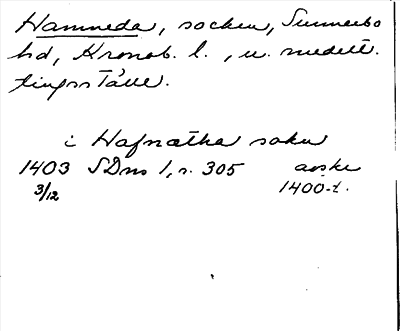 Hamneda, socken, Sunnerbo
hd, Kronob. l., u. medelt.
tingsställe.
i Hafnætha sokn
1403 SDns 1, s. 305 avskr
3/12 1400-t.